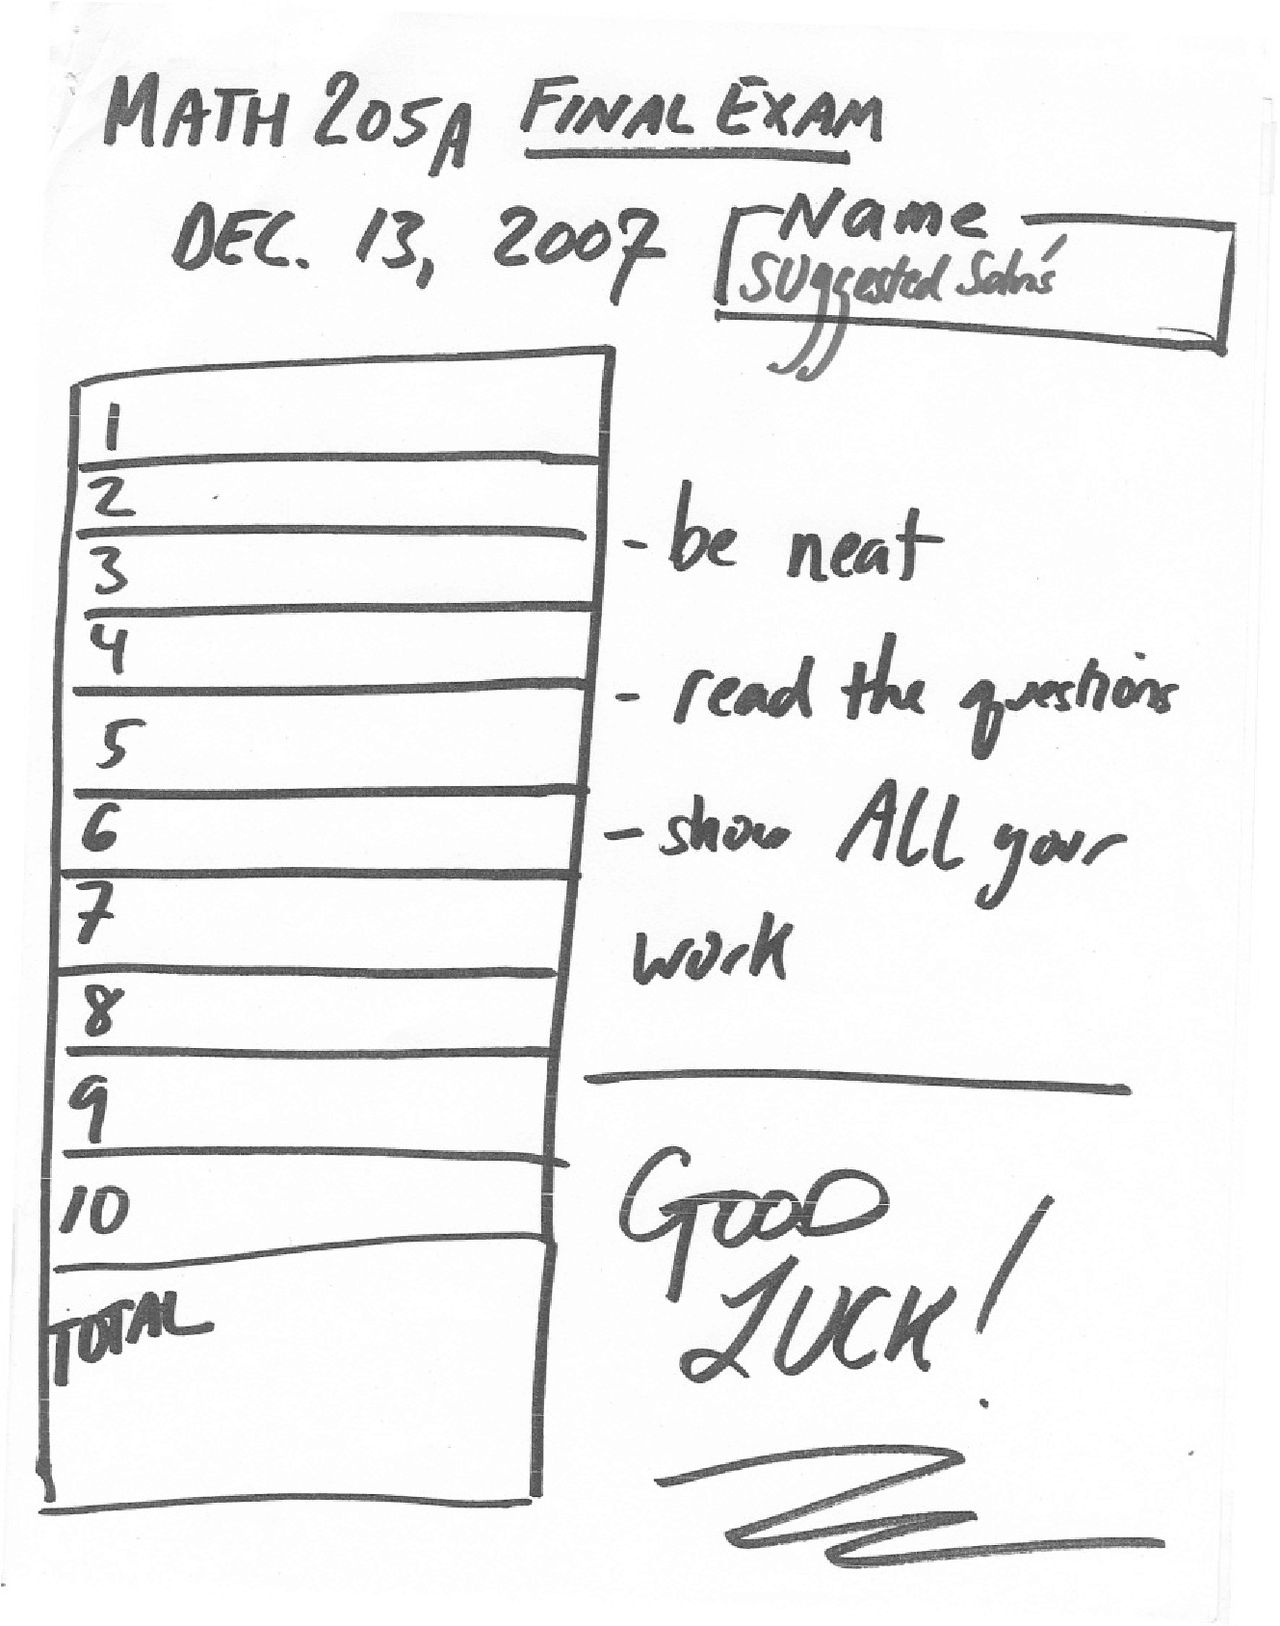 MATH 205A FINAL EXAM
DEC. 13, 2007
Name
Suggested Soln's
1
2
3
4
5
6
7
8
9
10
TOTAL
- be neat
- read the questions
- show ALL your
work
GOOD
LUCK!